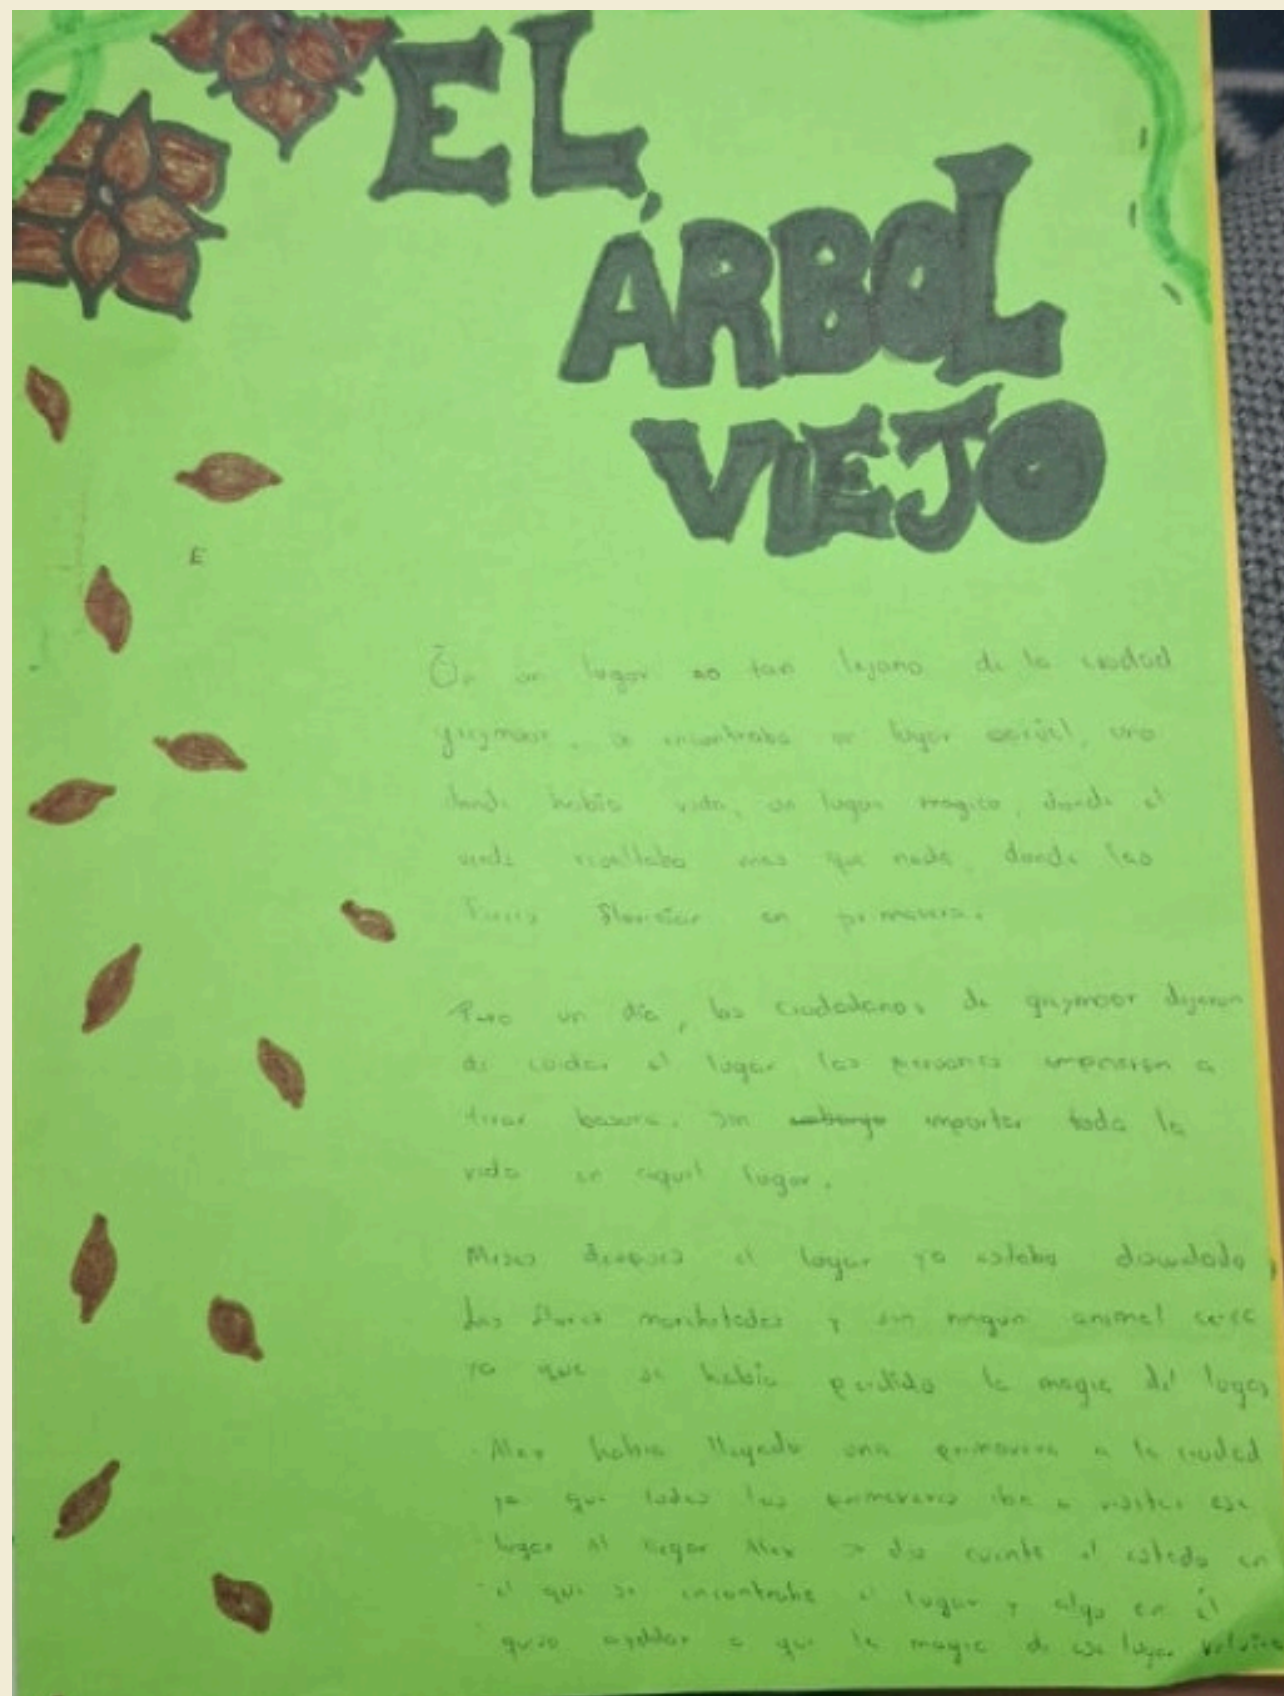 EL
ÁRBOL
VIEJO
E
En un lugar no tan lejano de la ciudad
graymoor, se encontraba un lugar, uno
donde había vida, un lugar magico, donde el
verde resaltaba mas que nada, donde las
flores florecian en primavera.
Pero un día, los ciudadanos de graymoor dejaron
de cuidar el lugar las personas empezaron a
tirar basura, sin importar toda la
vida en aquel lugar.
Meses despues el lugar ya estaba descuidado
Las flores marchitadas y sin ningun animal cerca
ya que se había perdido la magia del lugar
Alex habia llegado una primavera a la ciudad
ya que todas las primaveras iba a visitar ese
lugar al llegar Alex se dio cuenta el estado en
el que se encontraba el lugar y algo en él
quiso ayudar a que la magia de ese lugar volviera